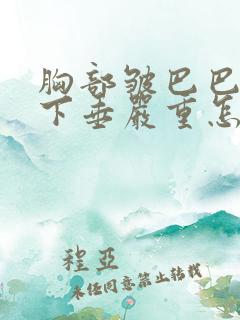 胸部皱巴巴
下垂严重怎
程亞
未经同意禁止转载